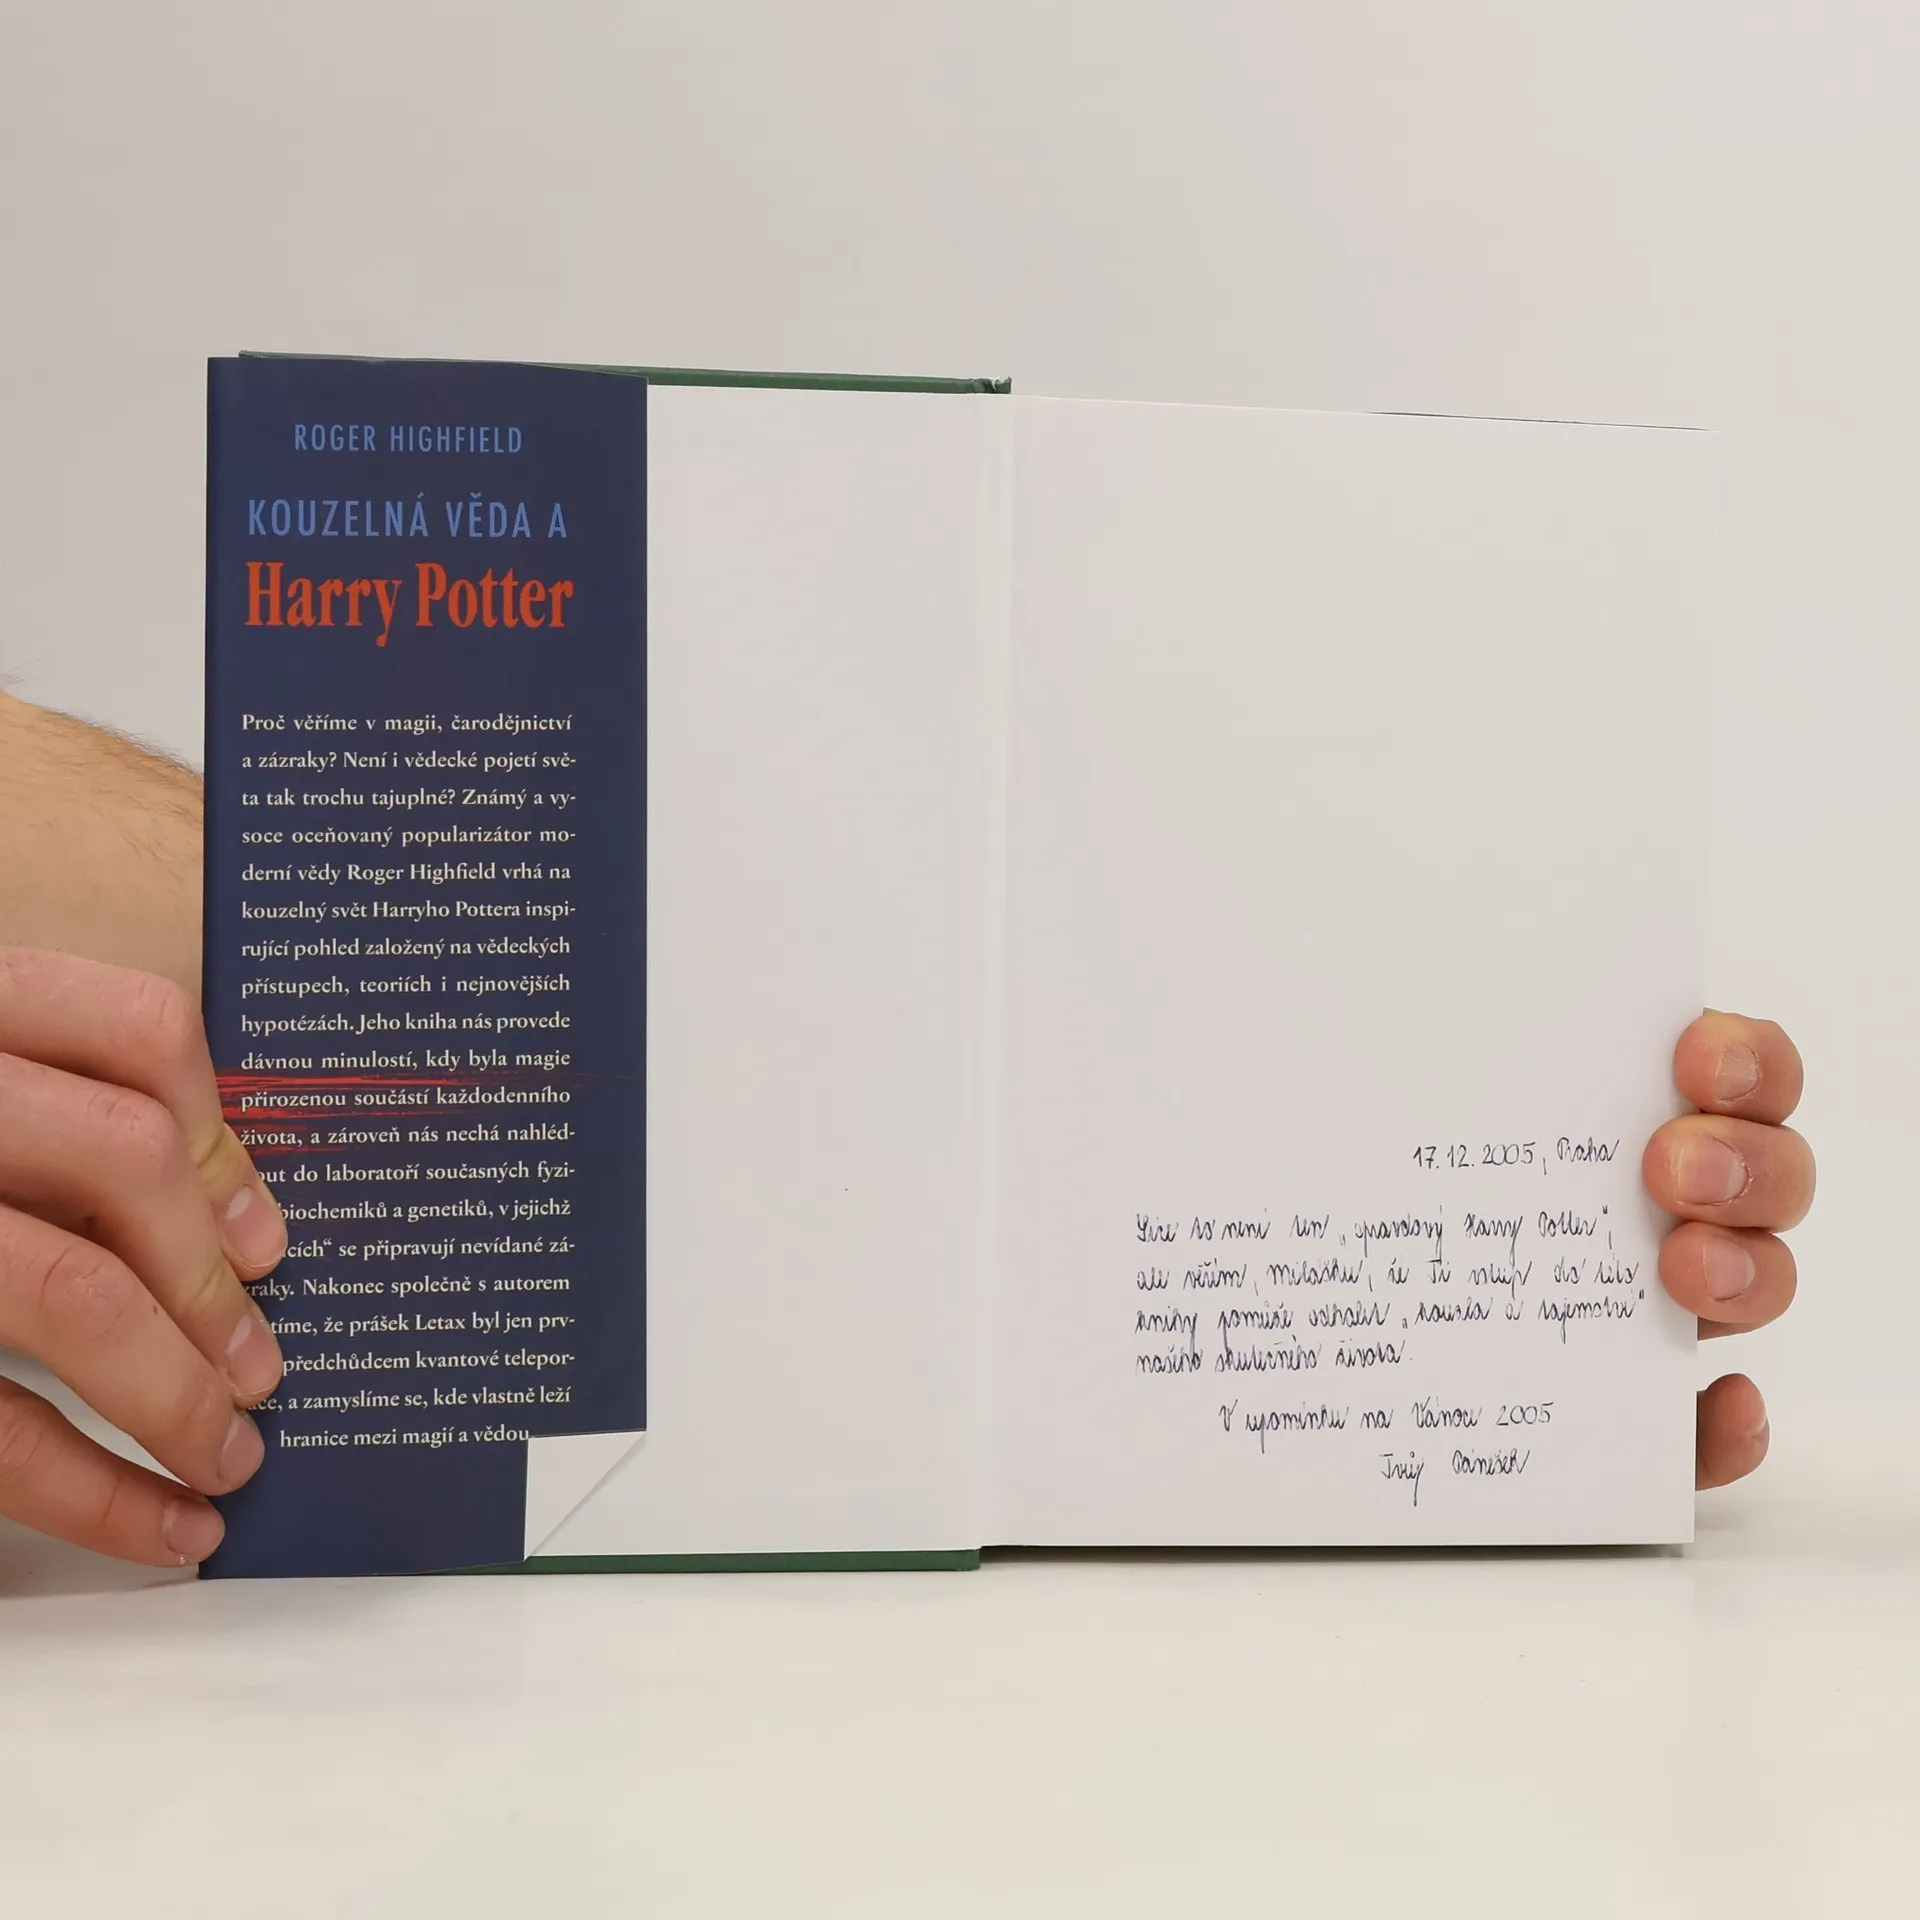 ROGER HIGHFIELD
KOUZELNÁ VĚDA A
Harry Potter
Proč věříme v magii, čarodějnictví
a zázraky? Není i vědecké pojetí svě-
ta tak trochu tajuplné? Známý a vy-
soce oceňovaný popularizátor mo-
derní vědy Roger Highfield vrhá na
kouzelný svět Harryho Pottera inspi-
rující pohled založený na vědeckých
přístupech, teoriích i nejnovějších
hypotézách. Jeho kniha nás provede
dávnou minulostí, kdy byla magie
přirozenou součástí každodenního
života, a zároveň nás nechá nahléd-
out do laboratoří současných fyzi-
biochemiků a genetiků, v jejichž
cích“ se připravují nevídané zá-
zraky. Nakonec společně s autorem
tíme, že prášek Letax byl jen prv-
předchůdcem kvantové telepor-
ace, a zamyslíme se, kde vlastně leží
hranice mezi magií a vědou.
17. 12. 2005, Praha
Sice to není ten „opravdový Harry Potter“,
ale věřím, milášku, že Ti vstup do této
knihy pomůže odhalit „kouzla a tajemství“
našeho skutečného života.
V upomínku na Vánoce 2005
Tvůj